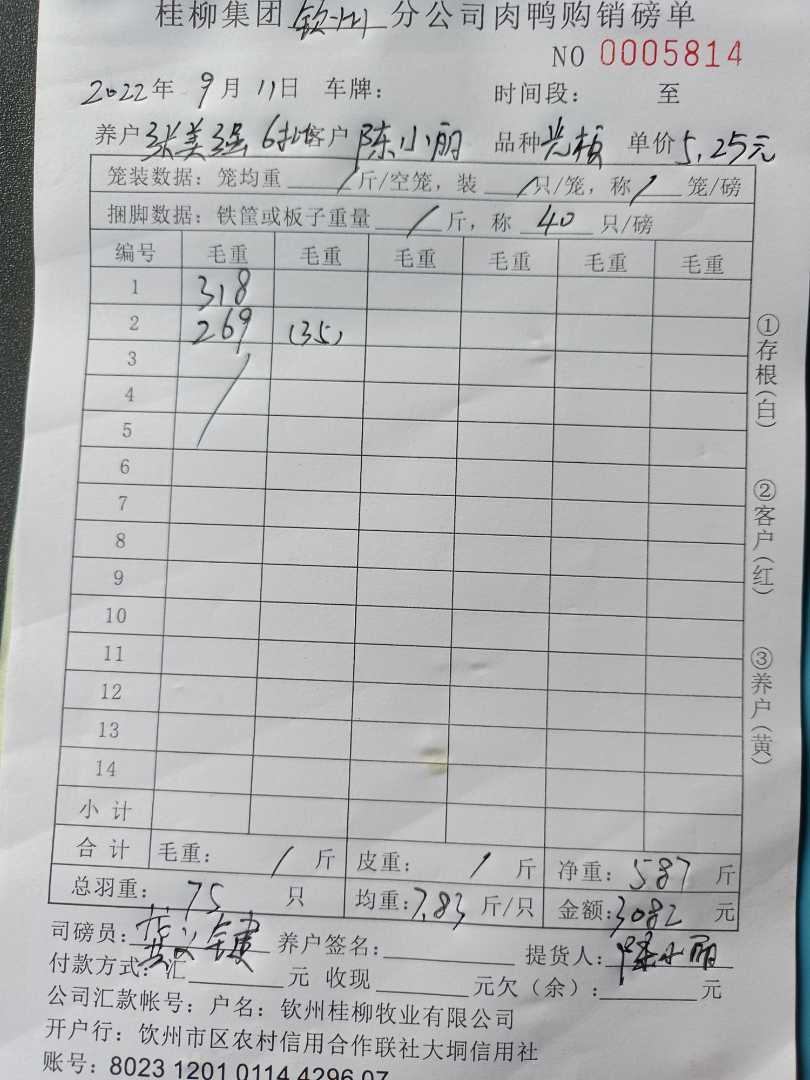 桂柳集团 钦州 分公司肉鸭购销磅单
NO 0005814
2022年 9月 11日 车牌： 时间段： 至
养户 张美强 6批 客户 陈小丽 品种 光核 单价 5.25元
笼装数据：笼均重 / 斤/空笼，装 / 只/笼，称 / 笼/磅
捆脚数据：铁筐或板子重量 / 斤，称 40 只/磅
编号 毛重 毛重 毛重 毛重 毛重 毛重
1 318
2 269 (35)
3
4
5
6
7
8
9
10
11
12
13
14
小 计
合 计 毛重： / 斤 皮重： / 斤 净重：587 斤
总羽重：75 只 均重：7.83 斤/只 金额：3082 元
司磅员： 养户签名： 提货人：陈小丽
付款方式：汇 元 收现 元欠（余）： 元
公司汇款帐号：户名：钦州桂柳牧业有限公司
开户行：钦州市区农村信用合作联社大垌信用社
账号：8023 1201 0114 4296 07
①存根（白）
②客户（红）
③养户（黄）